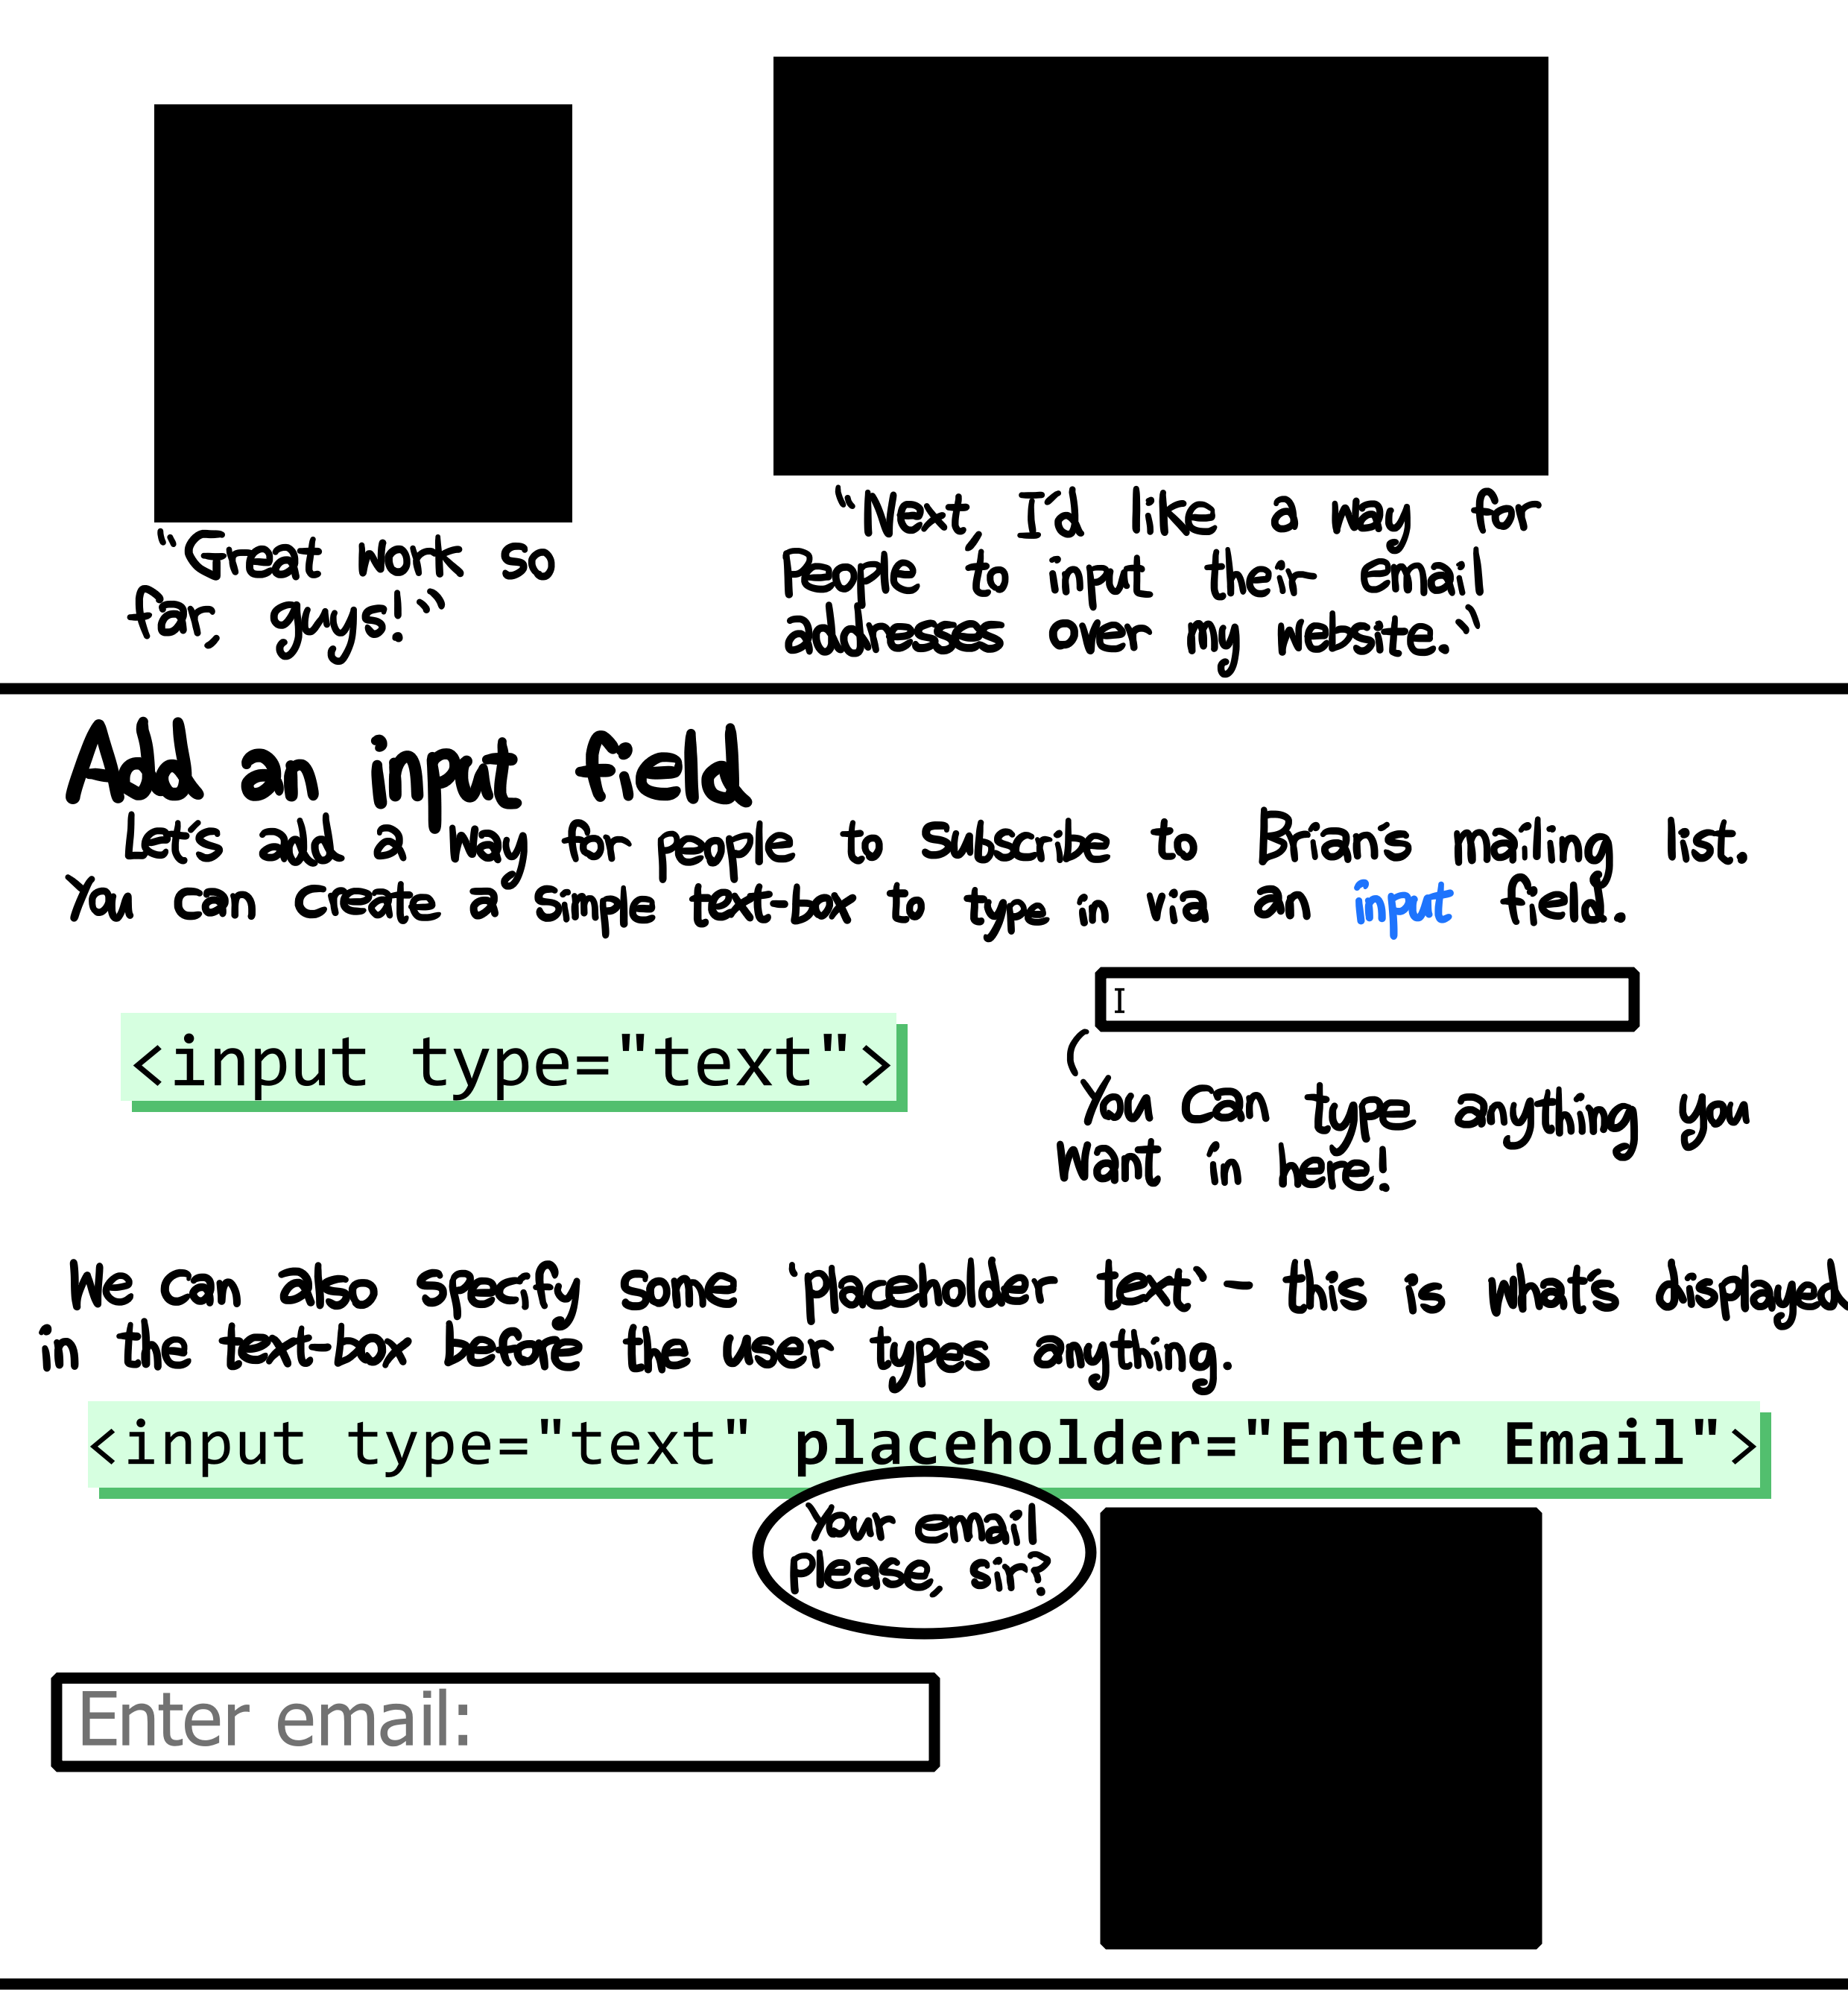 “Great work so
far, guys!”
“Next, I'd like a way for
People to input their email
addresses over my website.”
Add an input field
Let's add a way for people to subscribe to Brian's mailing list.
You can create a simple text-box to type in via an input field.
<input type="text">
I
You can type anything you
want in here!
We can also specify some 'placeholder text' - this is what's displayed
in the text-box before the user types anything.
<input type="text" placeholder="Enter Email">
Your email
please, sir?
Enter email: